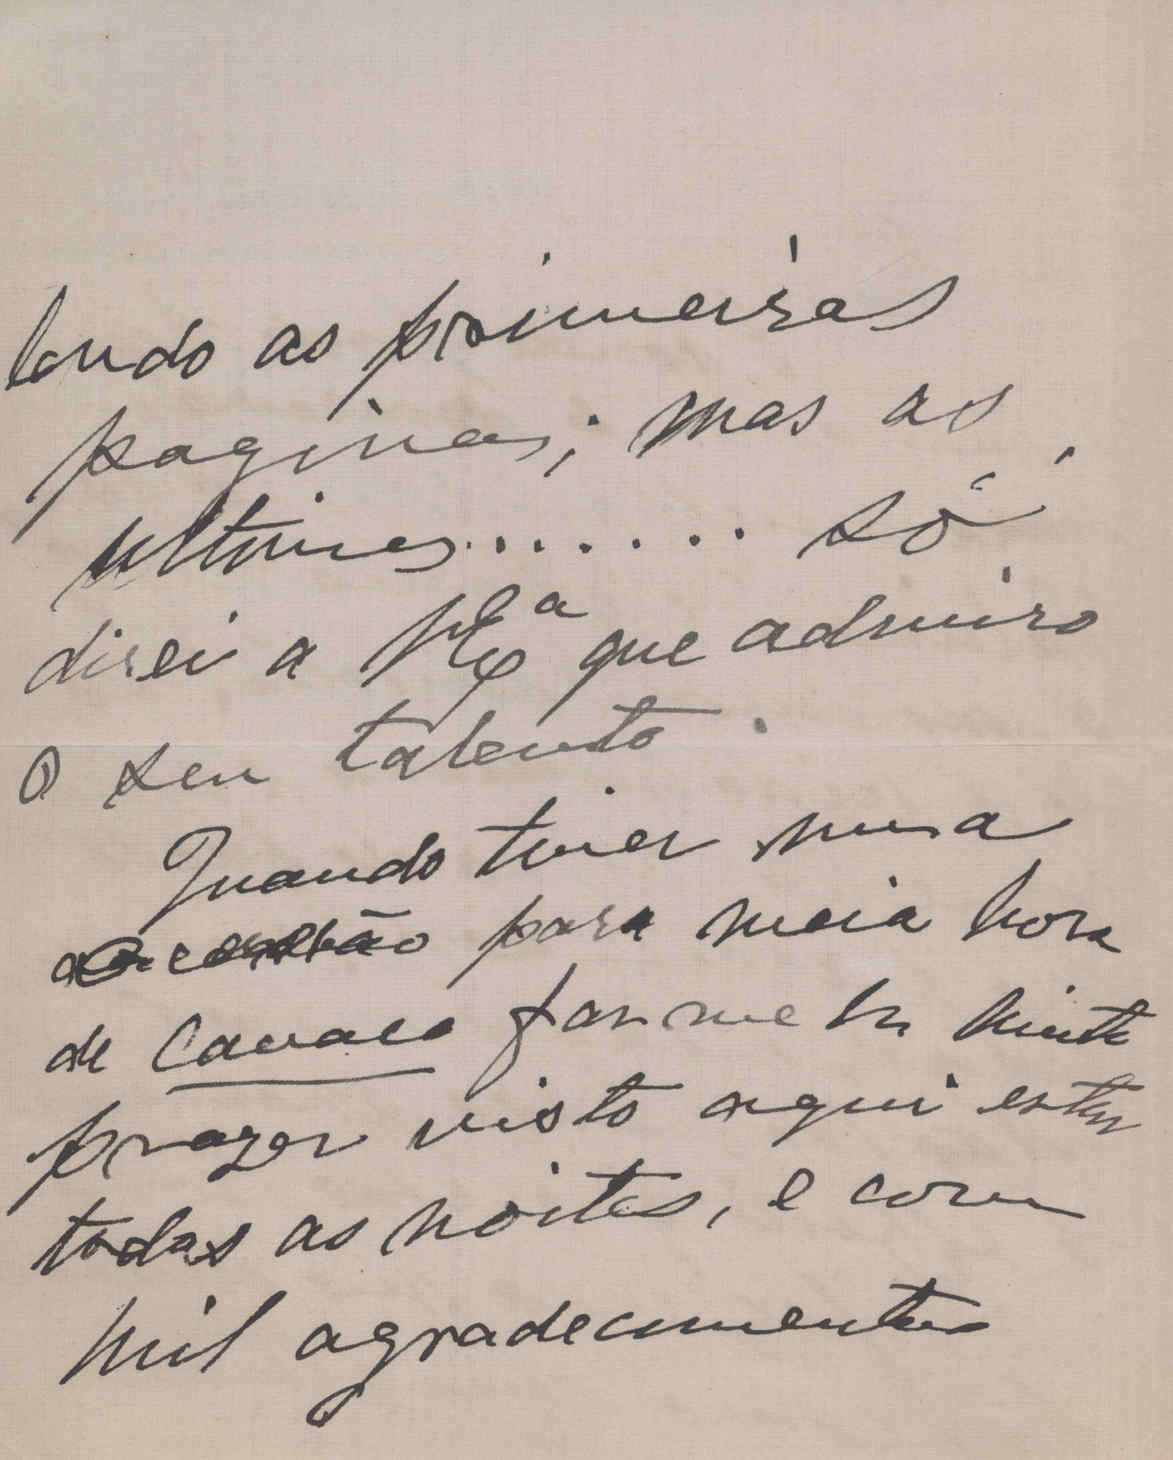 lendo as primeiras
paginas; mas as
ultimas....... só
direi a V. Exª que admiro
o seu talento.
Quando tiver uma
occasião para meia hora
de cavaco far-me-ha muito
prazer visto aqui estar
todas as noites, e com
mil agradecimentos